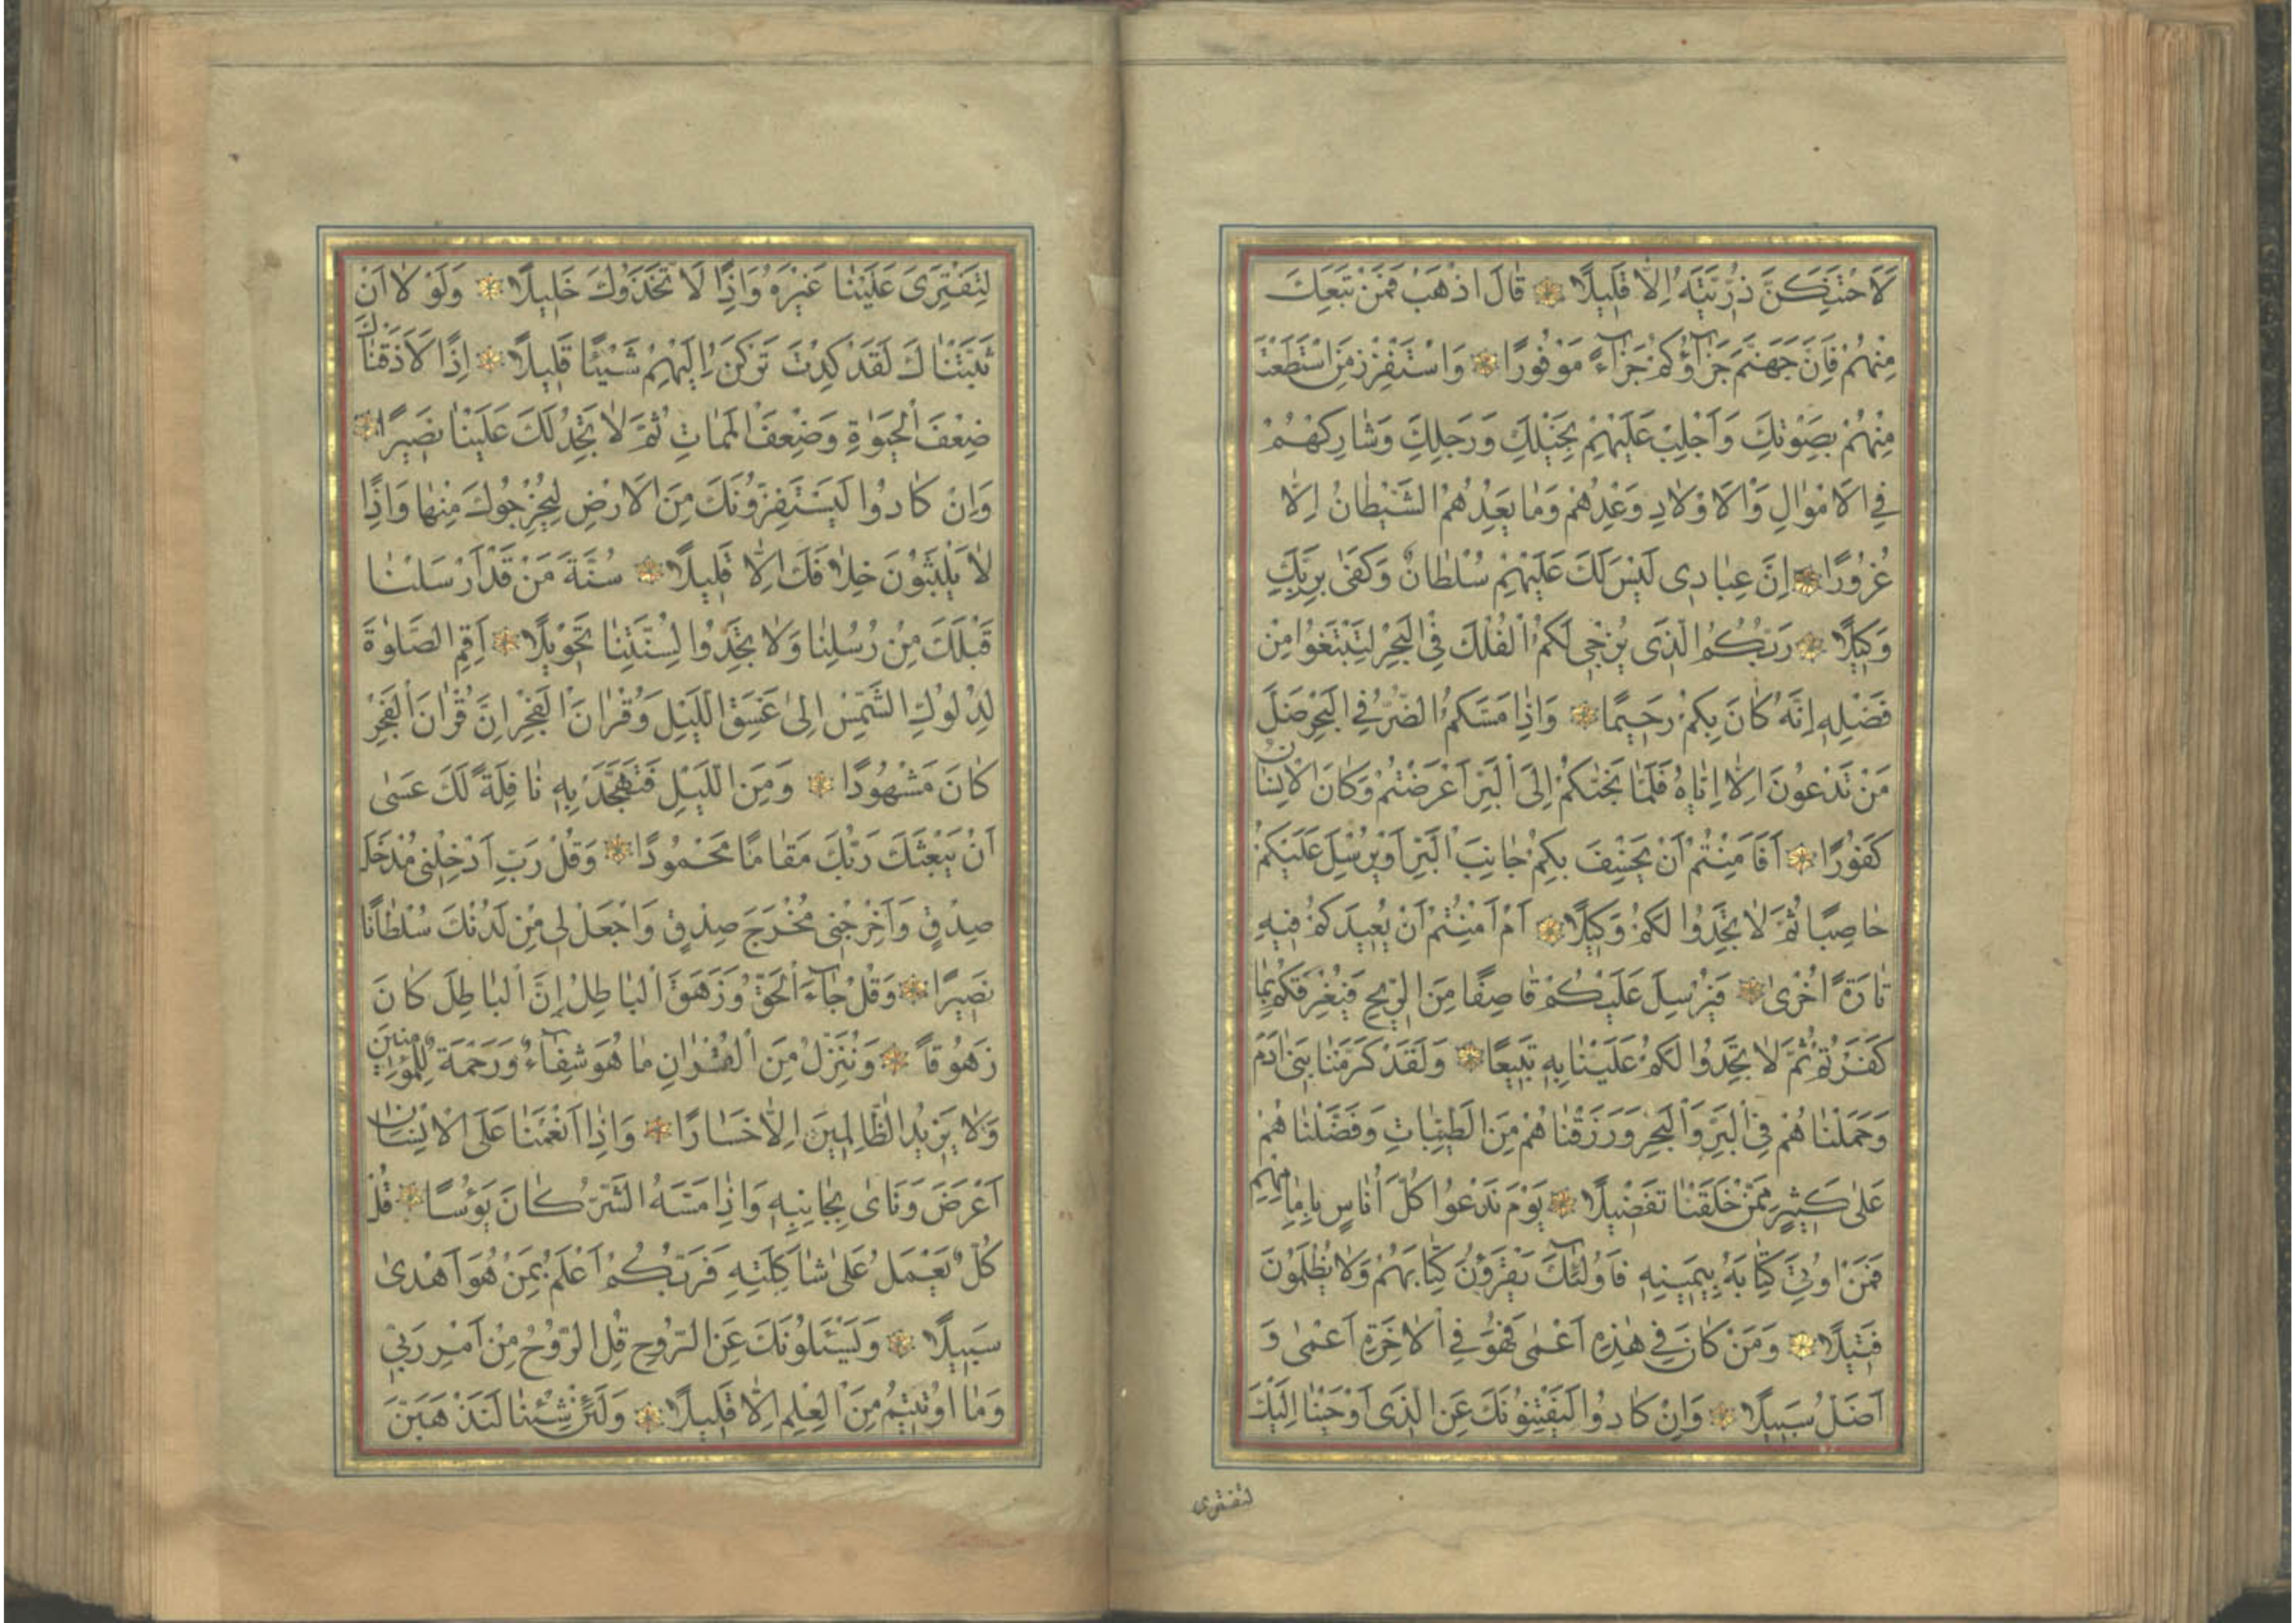 لَاَحْتَنِكَنَّ ذُرِّيَّتَهُ اِلّٰا قَلٖيلًا قٰالَ اذْهَبْ فَمَنْ تَبِعَكَ
مِنْهُمْ فَاِنَّ جَهَنَّمَ جَزٰٓاؤُكُمْ جَزٰٓاءً مَوْفُورًا وَاسْتَفْزِزْ مَنِ اسْتَطَعْتَ
مِنْهُمْ بِصَوْتِكَ وَاَجْلِبْ عَلَيْهِمْ بِخَيْلِكَ وَرَجِلِكَ وَشٰارِكْهُمْ
فِي الْاَمْوٰالِ وَالْاَوْلٰادِ وَعِدْهُمْ وَمٰا يَعِدُهُمُ الشَّيْطٰانُ اِلّٰا
غُرُورًا اِنَّ عِبٰادٖى لَيْسَ لَكَ عَلَيْهِمْ سُلْطٰانٌ وَكَفٰى بِرَبِّكَ
وَكٖيلًا رَبُّكُمُ الَّذٖى يُزْجٖى لَكُمُ الْفُلْكَ فِي الْبَحْرِ لِتَبْتَغُوا مِنْ
فَضْلِهٖ اِنَّهُ كٰانَ بِكُمْ رَحٖيمًا وَاِذٰا مَسَّكُمُ الضُّرُّ فِي الْبَحْرِ ضَلَّ
مَنْ تَدْعُونَ اِلّٰا اِيّٰاهُ فَلَمّٰا نَجّٰيكُمْ اِلَى الْبَرِّ اَعْرَضْتُمْ وَكٰانَ الْاِنْسٰانُ
كَفُورًا اَفَاَمِنْتُمْ اَنْ يَخْسِفَ بِكُمْ جٰانِبَ الْبَرِّ اَوْ يُرْسِلَ عَلَيْكُمْ
حٰاصِبًا ثُمَّ لٰا تَجِدُوا لَكُمْ وَكٖيلًا اَمْ اَمِنْتُمْ اَنْ يُعٖيدَكُمْ فٖيهِ
تٰارَةً اُخْرٰى فَيُرْسِلَ عَلَيْكُمْ قٰاصِفًا مِنَ الرّٖيحِ فَيُغْرِقَكُمْ بِمٰا
كَفَرْتُمْ ثُمَّ لٰا تَجِدُوا لَكُمْ عَلَيْنٰا بِهٖ تَبٖيعًا وَلَقَدْ كَرَّمْنٰا بَنٖى اٰدَمَ
وَحَمَلْنٰاهُمْ فِي الْبَرِّ وَالْبَحْرِ وَرَزَقْنٰاهُمْ مِنَ الطَّيِّبٰاتِ وَفَضَّلْنٰاهُمْ
عَلٰى كَثٖيرٍ مِمَّنْ خَلَقْنٰا تَفْضٖيلًا يَوْمَ نَدْعُوا كُلَّ اُنٰاسٍ بِاِمٰامِهِمْ
فَمَنْ اُوتِيَ كِتٰابَهُ بِيَمٖينِهٖ فَاُولٰٓئِكَ يَقْرَؤُنَ كِتٰابَهُمْ وَلٰا يُظْلَمُونَ
فَتٖيلًا وَمَنْ كٰانَ فٖى هٰذِهٖ اَعْمٰى فَهُوَ فِي الْاٰخِرَةِ اَعْمٰى وَ
اَضَلُّ سَبٖيلًا وَاِنْ كٰادُوا لَيَفْتِنُونَكَ عَنِ الَّذٖى اَوْحَيْنٰا اِلَيْكَ
لتفترى
لِتَفْتَرِىَ عَلَيْنٰا غَيْرَهُ وَاِذًا لَاتَّخَذُوكَ خَلٖيلًا وَلَوْ لٰا اَنْ
ثَبَّتْنٰاكَ لَقَدْ كِدْتَ تَرْكَنُ اِلَيْهِمْ شَيْئًا قَلٖيلًا اِذًا لَاَذَقْنٰاكَ
ضِعْفَ الْحَيٰوةِ وَضِعْفَ الْمَمٰاتِ ثُمَّ لٰا تَجِدُ لَكَ عَلَيْنٰا نَصٖيرًا
وَاِنْ كٰادُوا لَيَسْتَفِزُّونَكَ مِنَ الْاَرْضِ لِيُخْرِجُوكَ مِنْهٰا وَاِذًا
لٰا يَلْبَثُونَ خِلٰافَكَ اِلّٰا قَلٖيلًا سُنَّةَ مَنْ قَدْ اَرْسَلْنٰا
قَبْلَكَ مِنْ رُسُلِنٰا وَلٰا تَجِدُ لِسُنَّتِنٰا تَحْوٖيلًا اَقِمِ الصَّلٰوةَ
لِدُلُوكِ الشَّمْسِ اِلٰى غَسَقِ اللَّيْلِ وَقُرْاٰنَ الْفَجْرِ اِنَّ قُرْاٰنَ الْفَجْرِ
كٰانَ مَشْهُودًا وَمِنَ اللَّيْلِ فَتَهَجَّدْ بِهٖ نٰافِلَةً لَكَ عَسٰى
اَنْ يَبْعَثَكَ رَبُّكَ مَقٰامًا مَحْمُودًا وَقُلْ رَبِّ اَدْخِلْنٖى مُدْخَلَ
صِدْقٍ وَاَخْرِجْنٖى مُخْرَجَ صِدْقٍ وَاجْعَلْ لٖى مِنْ لَدُنْكَ سُلْطٰانًا
نَصٖيرًا وَقُلْ جٰٓاءَ الْحَقُّ وَزَهَقَ الْبٰاطِلُ اِنَّ الْبٰاطِلَ كٰانَ
زَهُوقًا وَنُنَزِّلُ مِنَ الْقُرْاٰنِ مٰا هُوَ شِفٰٓاءٌ وَرَحْمَةٌ لِلْمُؤْمِنٖينَ
وَلٰا يَزٖيدُ الظّٰالِمٖينَ اِلّٰا خَسٰارًا وَاِذٰا اَنْعَمْنٰا عَلَى الْاِنْسٰانِ
اَعْرَضَ وَنَاٰى بِجٰانِبِهٖ وَاِذٰا مَسَّهُ الشَّرُّ كٰانَ يَؤُسًا قُلْ
كُلٌّ يَعْمَلُ عَلٰى شٰاكِلَتِهٖ فَرَبُّكُمْ اَعْلَمُ بِمَنْ هُوَ اَهْدٰى
سَبٖيلًا وَيَسْـَٔلُونَكَ عَنِ الرُّوحِ قُلِ الرُّوحُ مِنْ اَمْرِ رَبّٖى
وَمٰا اُوتٖيتُمْ مِنَ الْعِلْمِ اِلّٰا قَلٖيلًا وَلَئِنْ شِئْنٰا لَنَذْهَبَنَّ